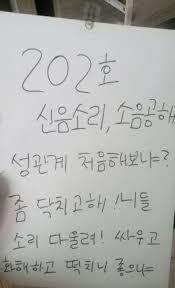 202호
신음소리, 소음공해
성관계 처음해보냐?
좀 닥치고해 !니들
소리 다울려! 싸우고
화해하고 떡치니 좋으냐=